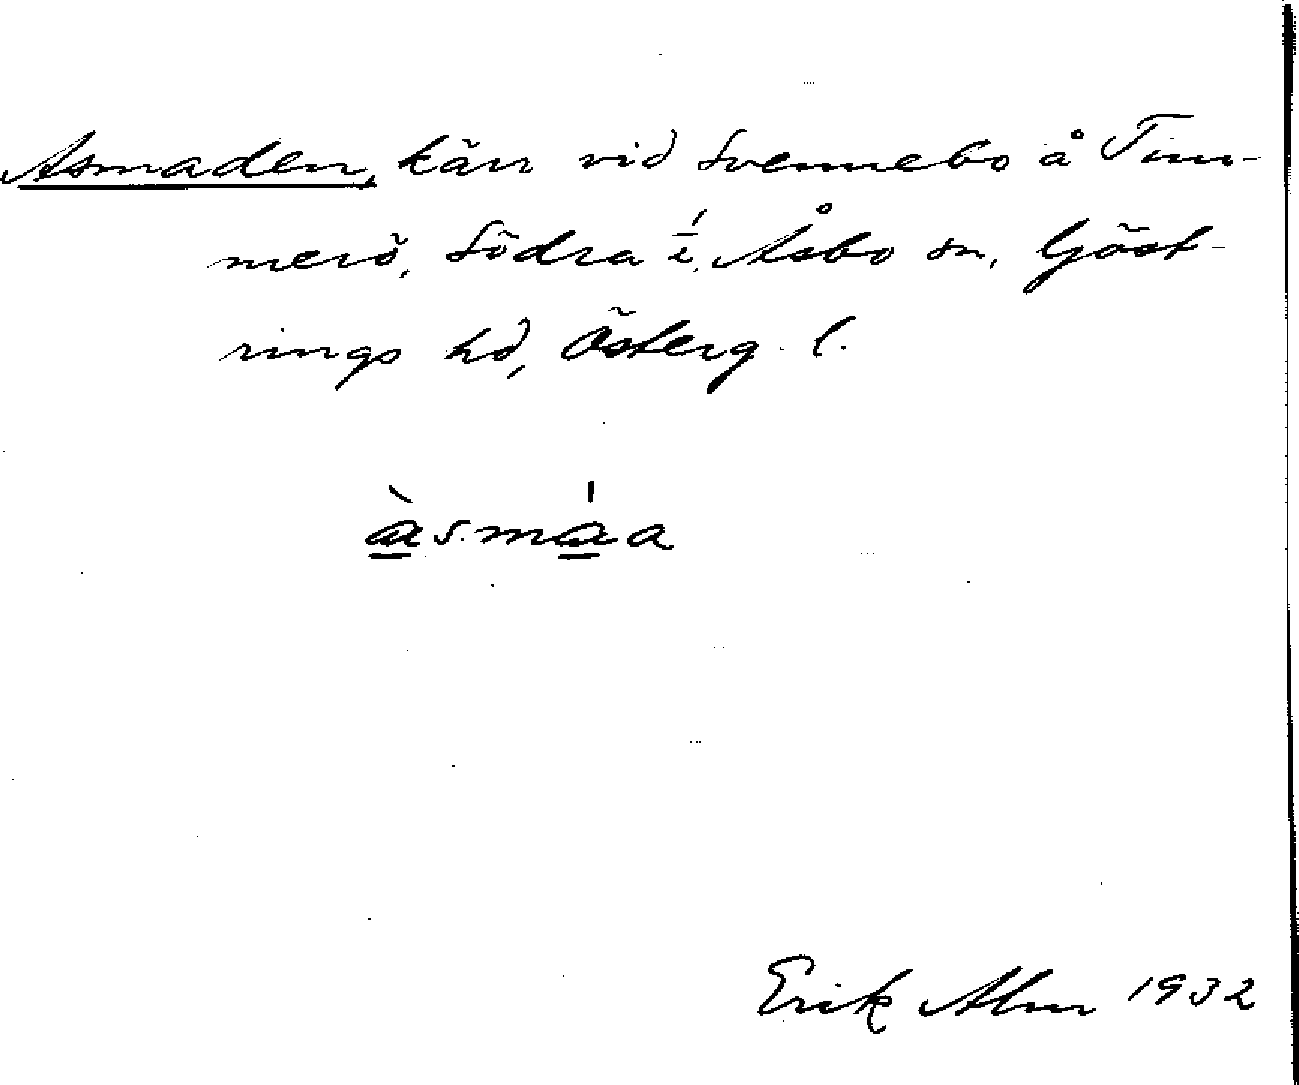 Asmaden, kärr vid Svennebo å Tim-
merö, Södra i, Åsbo sn, Göst-
rings hd, Österg. l.
àsmáa
Erik Alm 1932